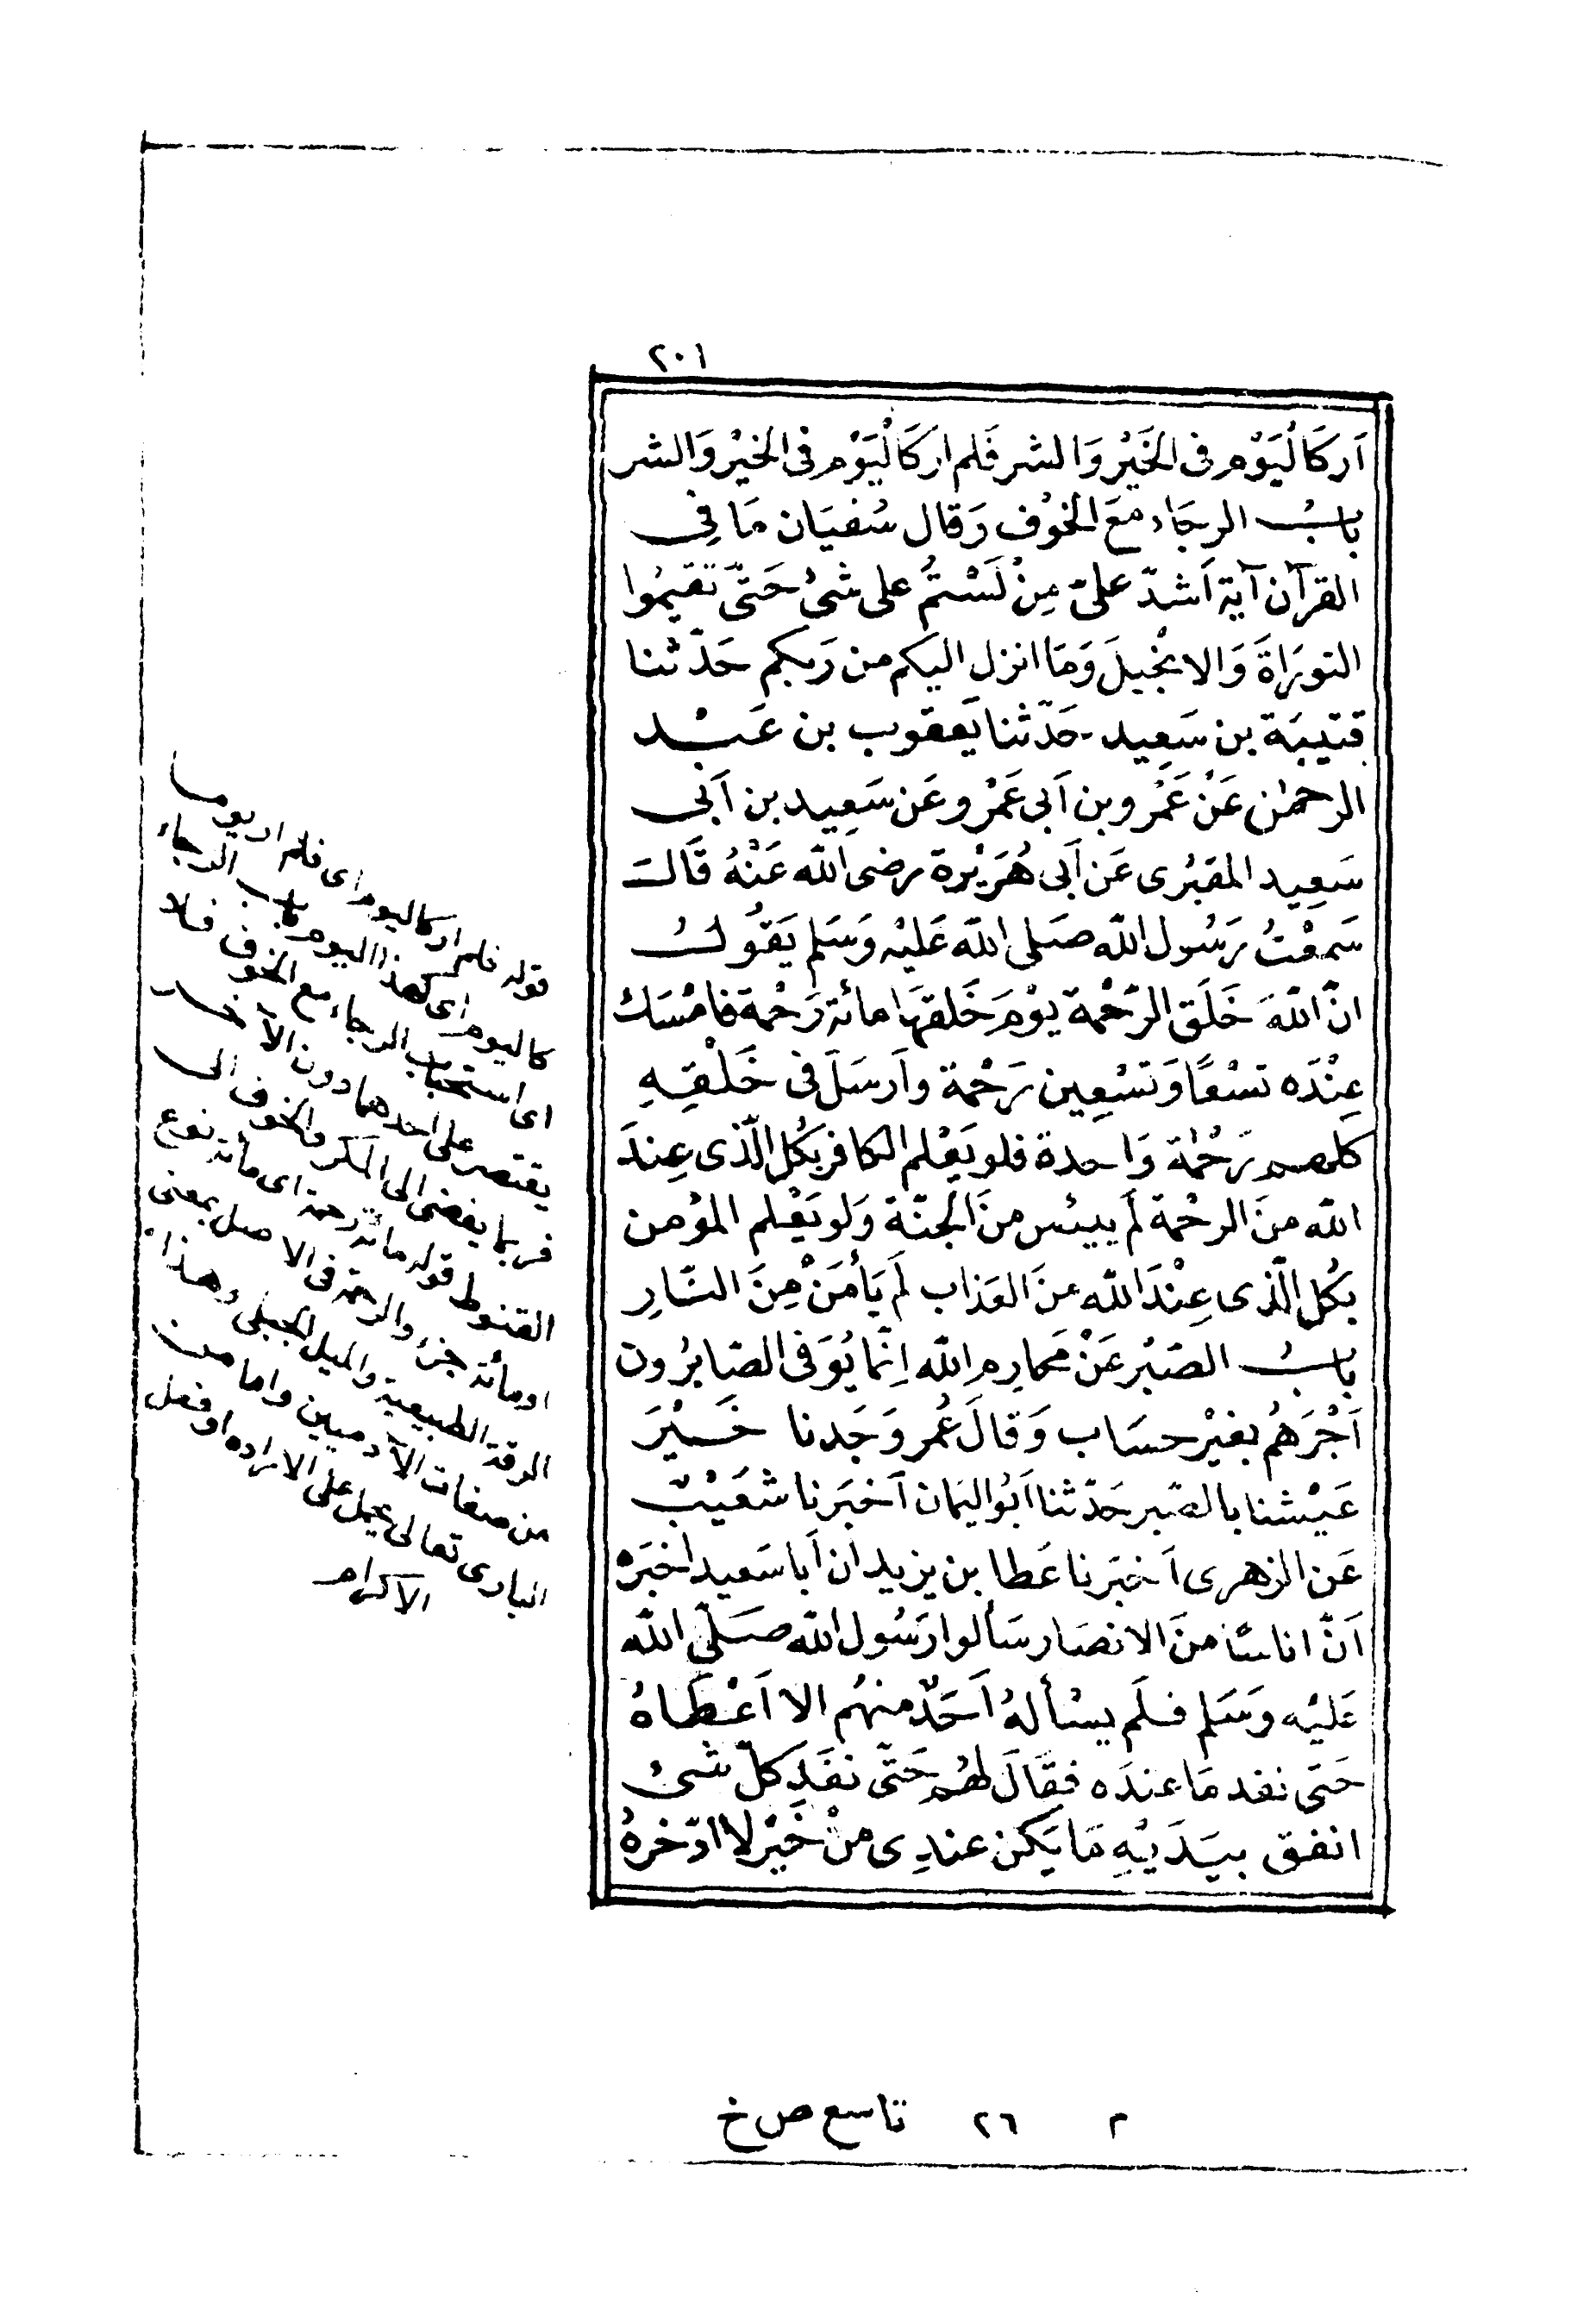 ٢٠١
اَركَاليَوْم فى الخَيْر وَالشر فَلم ار كَاليَوْم فى الخيْر وَالشر
بابُ الرجَاء مَعَ الخوْف وَقال سُفيَان مَا فِى
القرآن آية اَشدّ علىّ مِنْ لَسْتُمْ على شىْ حَتّى تقيمُوا
التورَاةَ وَالانجْيلَ وَمَا انزل اليكم من رَبكم حَدّثنا
قتيبَة بن سَعِيد حَدّثنا يَعقوب بن عَبْد
الرحمٰن عَنْ عَمْرو بن اَبى عَمْرو عَن سَعِيد بن اَبى
سَعِيد المقبُرى عَن اَبى هُرَيْرة رضى الله عَنْهُ قَالَ
سَمِعْتُ رَسُول الله صَلى الله عَليْه وَسَلم يَقُولُ
انّ اللهَ خَلَق الرّحْمة يوْمَ خَلقهَا مائة رَحْمة فامْسَك
عِنْدَه تسْعًا وَتسْعِين رَحْمة واَرسَلَ فى خَلْقِهِ
كلهم رَحْمة وَاحدة فلو يَعْلم الكافر بكُل الّذى عِندَ
الله منَ الرحْمة لَم ييئس منَ الجنّة وَلو يَعْلم المؤمن
بكُل الّذى عِنْدَ الله منَ العَذاب لَم يَأمَنْ مِنَ النّارِ
بابُ الصّبْر عَنْ مَحَارِم الله اِنّما يُوَفى الصّابرُون
اَجْرَهُم بغيْر حسَاب وَقالَ عُمر وَجَدنا خَيْرَ
عَيْشنا بالصّبر حَدّثنا اَبُو اليمَان اَخبَرنا شعَيْبٌ
عَن الزهرى اَخبَرنا عَطا بن يزيد ان اَبا سَعِيد اخبَرَهْ
اَنّ اناسًا منَ الانصَار سَألوا رَسُول الله صَلّى الله
عَليْه وَسَلم فلَم يسْألهُ اَحَدٌ منهُم الا اَعْطَاهُ
حَتى نفد مَا عندَه فقَالَ لهُم حَتّى نفَدِ كلّ شىْ
انفق بيَدَيْهِ مَا يَكن عندِى منْ خَيْر لا ادّخرهُ
قوله فلم ار كاليوم اى فلم ار يوما
كاليوم اى كهذا اليوم باب الرجاء
مع الخوف
اى استحباب الرجاء مع الخوف فلا
يقتصر على احدهما دون الآخر
فربما يفضى الى المكر والخوف الى
القنوط قوله مائة رحمة اى مائة نوع
او مائة جزء والرحمة فى الاصل بمعنى
الرقة الطبيعية والميل الجبلى وهذا
من صفات الآدميين واما من
البارى تعالى على الاراده او فعل
الاكرام
٢ ٢٦ تاسع ص خ